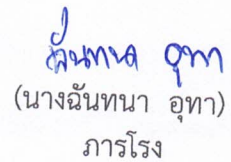 ฉันทนา อุทา
(นางฉันทนา อุทา)
ภารโรง